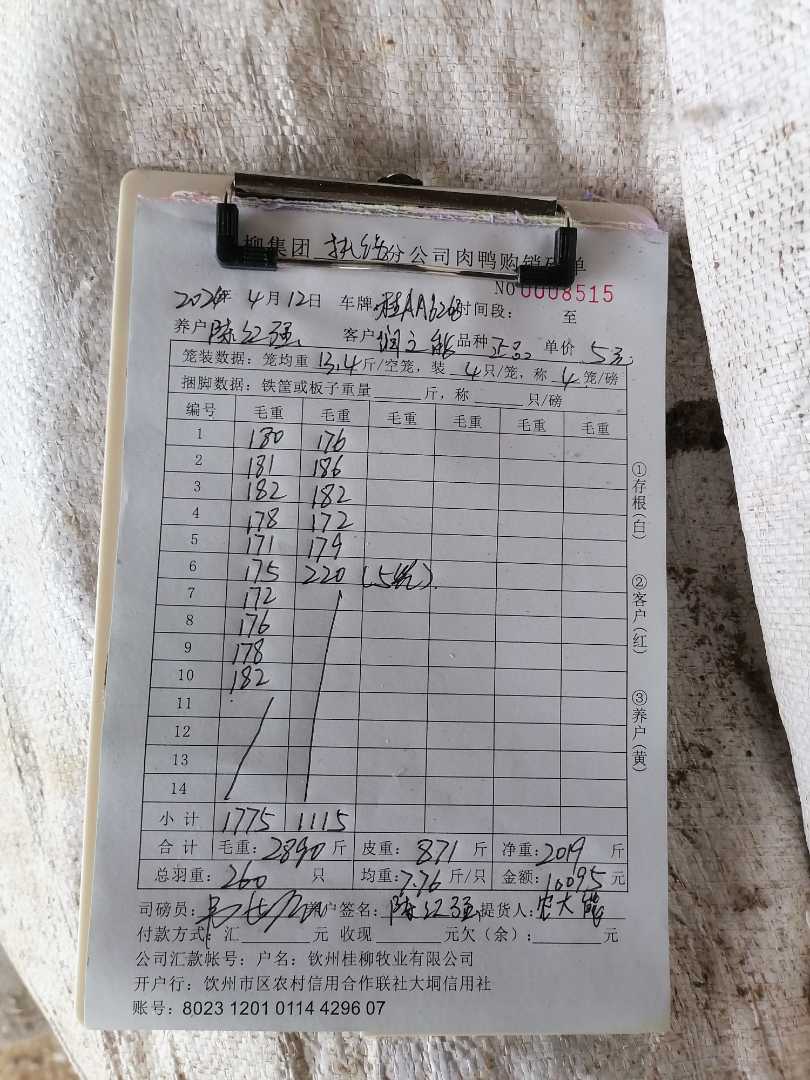 柳集团 分公司肉鸭购销 单
NO 0008515
年 4月12日 车牌: 时间段: 至
养户 陈红强 客户 品种 正品 单价 5元
笼装数据: 笼均重 13.4 斤/空笼, 装 4 只/笼, 称 4 笼/磅
捆脚数据: 铁筐或板子重量 斤, 称 只/磅
编号 毛重 毛重 毛重 毛重 毛重 毛重
1 180 176
2 181 186
3 182 182
4 178 172
5 171 179
6 175 220 (5笼)
7 172
8 176
9 178
10 182
11
12
13
14
小计 1775 1115
合计 毛重: 2890 斤 皮重: 871 斤 净重: 2019 斤
总羽重: 260 只 均重: 7.76 斤/只 金额: 10095 元
司磅员: 户签名: 陈红强 提货人:
付款方式: 汇 元 收现 元欠(余): 元
公司汇款帐号: 户名: 钦州桂柳牧业有限公司
开户行: 钦州市区农村信用合作联社大垌信用社
账号: 8023 1201 0114 4296 07
①存根(白)
②客户(红)
③养户(黄)